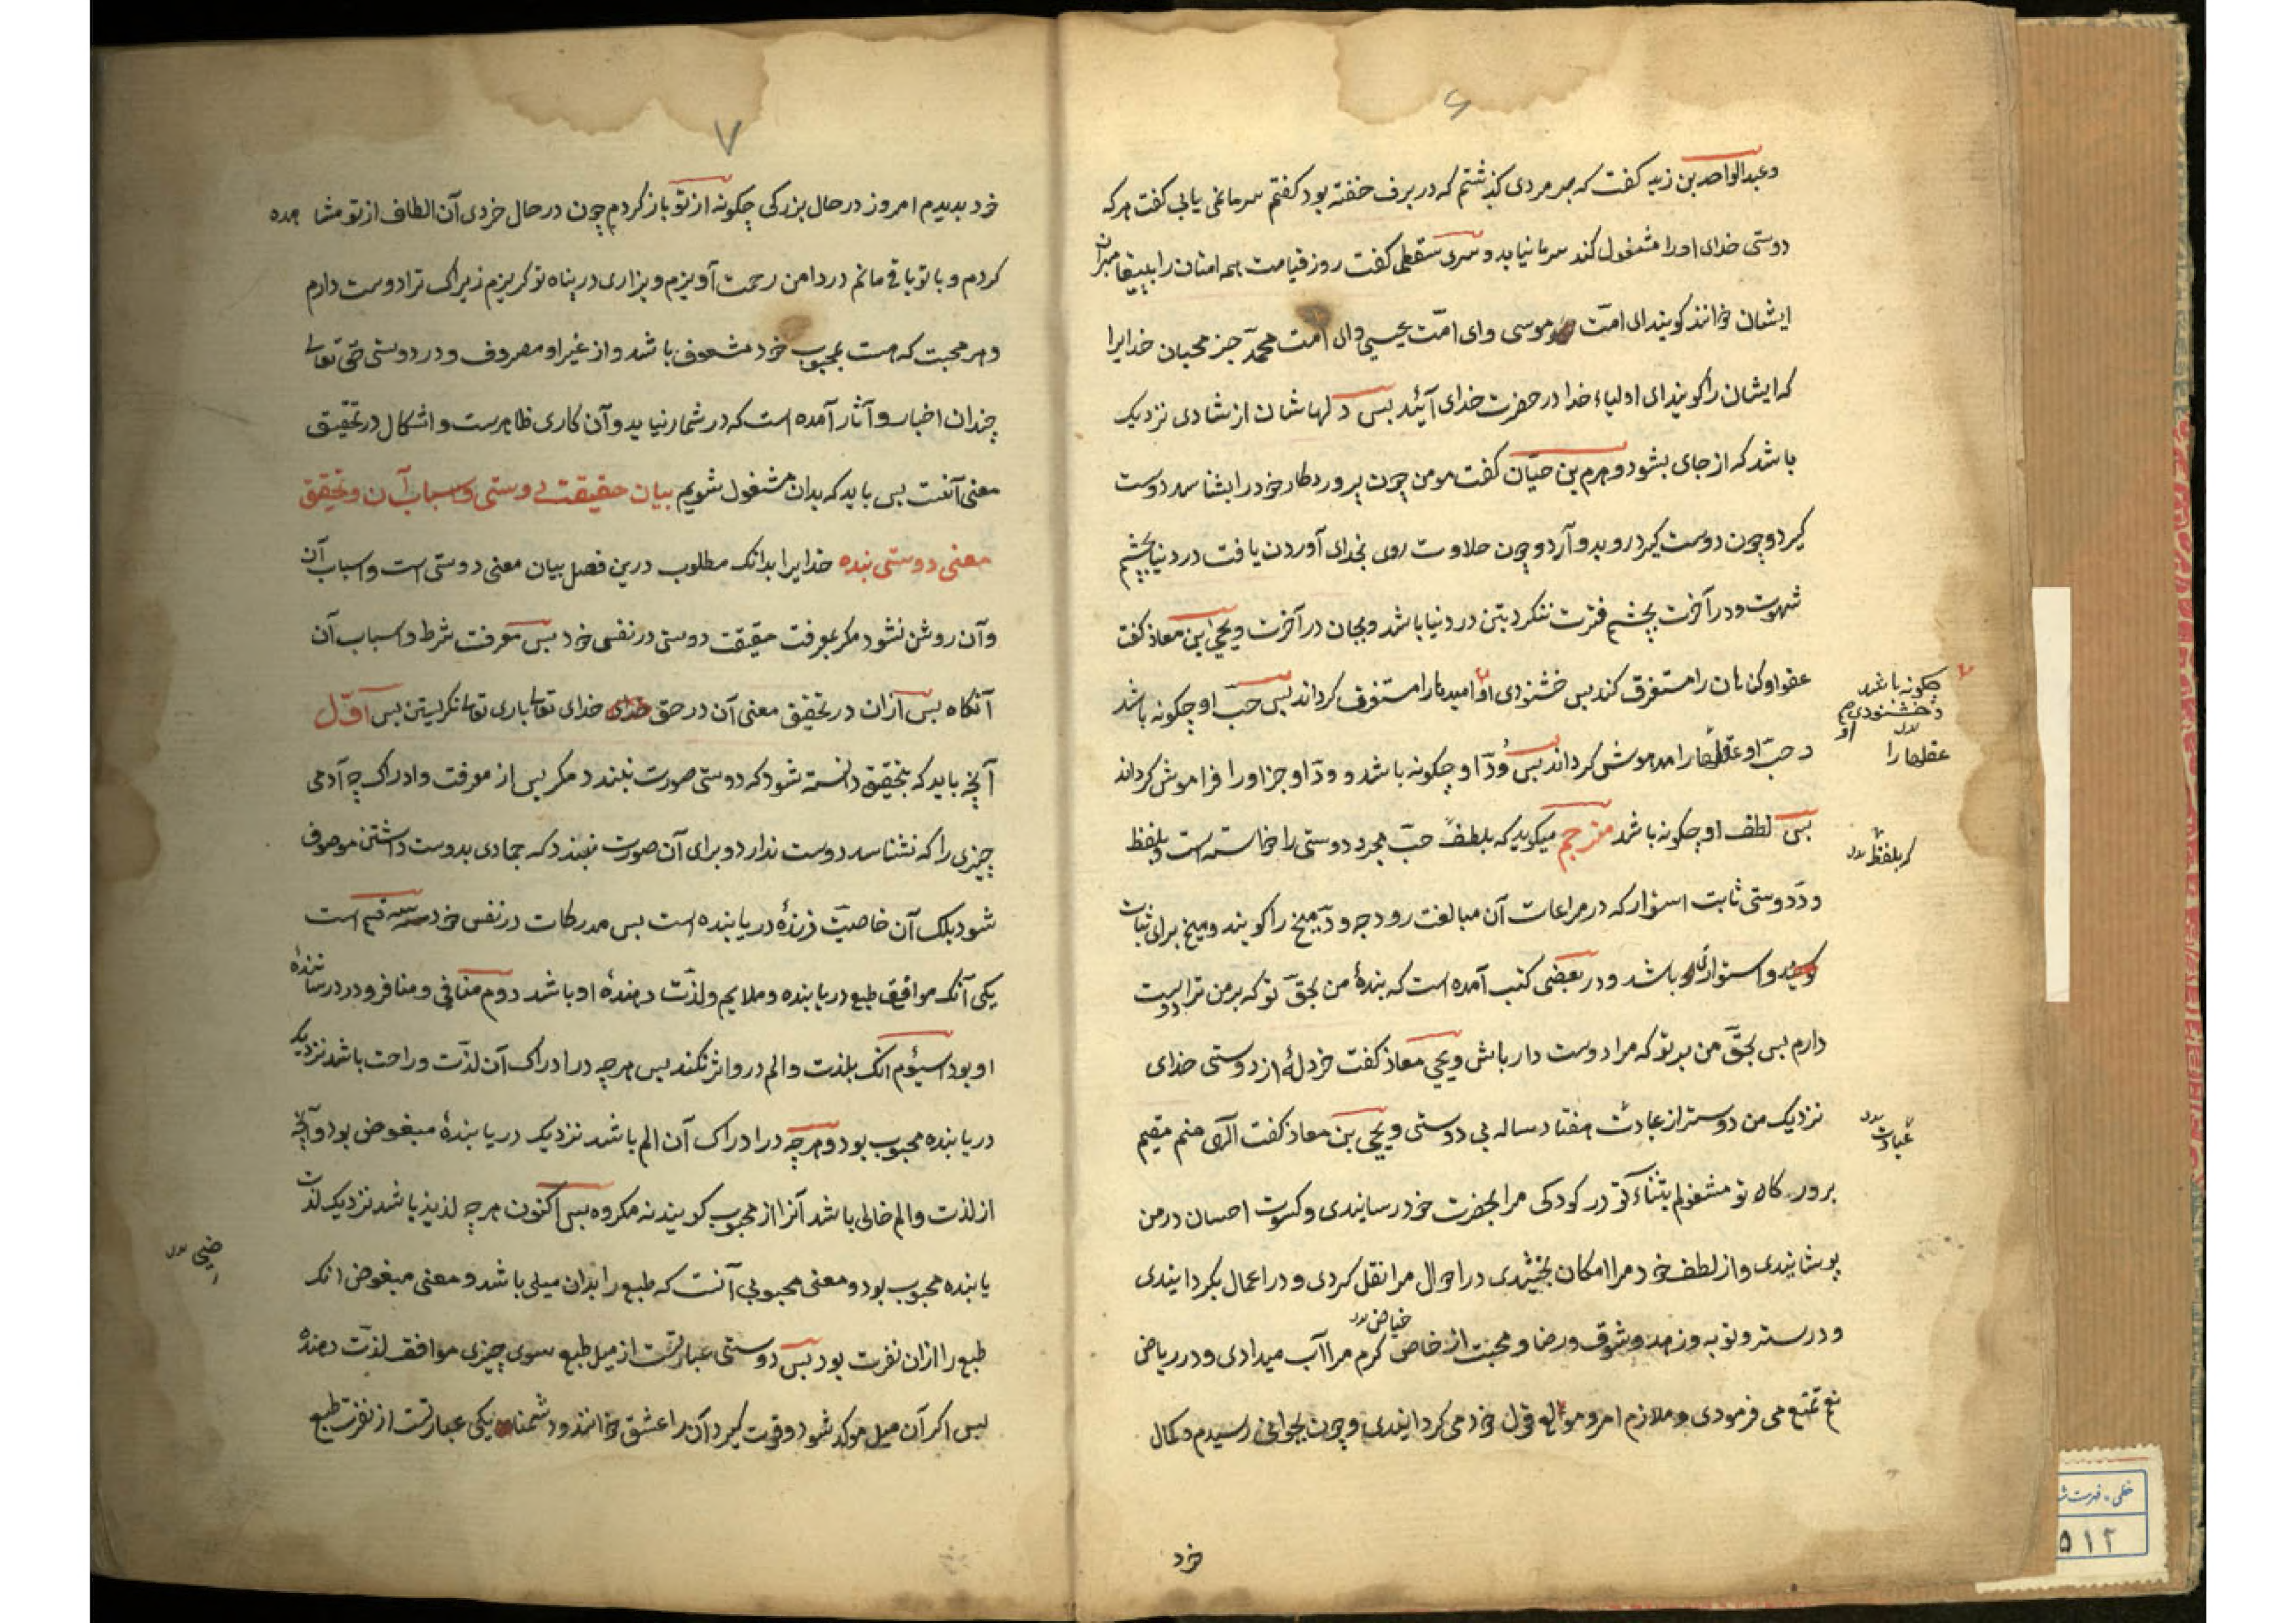 ۶
وعبدالواحد بن زید کفت که بر مردی کذشتم که در برف خفته بود کفتم سرما نمی یابی کفت هرکه
دوستی خدای اورا مشغول کند سرما نیابد و سری سقطی کفت روز قیامت همه امتان را بپیغامبران
ایشان خوانند کویند ای امت موسی وای امّت عیسی وای امت محمّد جز محبان خدایرا
که ایشان را کویند ای اولیاء خدا در حضرت خدای آئید بس دلهاشان از شادی نزدیک
باشد که از جای بشود و هرم بن حیّان کفت مومن چون پروردکار خود را بشناسد دوست
کیرد و چون دوست کیرد رو بدو آرد و چون حلاوت روی بخدای آوردن یافت در دنیا بچشم
شهوت و در آخرت بچشم فترت ننکرد بتن در دنیا باشد و بجان در آخرت و یحیی ابن معاذ کفت
عفو او کناهان را مستغرق کند بس خشنودی او امیدها را مستغرق کرداند بس حبّ او چکونه باشد
و حبّ او عقلها را مدهوش کرداند بس وُدّ او چکونه باشد و ودّ او جز اورا فراموش کرداند
بس لطف او چکونه باشد مترجم میکوید که بلطف حبّ مجرد دوستی را خواسته است و بلفظ
ودّ دوستی ثابت استوار که در مراعات آن مبالغت رود چه ودّ میخ را کویند و میخ برای ثبات
و استواری باشد و در بعضی کتب آمده است که بندهٔ من بحقّ تو که بر من ترا دوست
دارم بس بحقّ من بر تو که مرا دوست دار باش و یحیی معاذ کفت خردلهٔ از دوستی خدای
نزدیک من دوستر از عبادت هفتاد ساله بی دوستی و یحیی بن معاذ کفت الهی منم مقیم
بر در کاه تو مشغولم بثناء تو در کودکی مرا بحضرت خود رسانیدی و کسوت احسان در من
پوشانیدی و از لطف خود مرا امکان بخشیدی در احوال مرا نقل کردی و در اعمال بکردانیدی
و در ستر و توبه و زهد و شوق و رضا و محبت از خاص کرم مرا آب میدادی و در ریاض
حیاض
تمتع می فرمودی و ملازم امر و قول خود می کردانیدی و چون بجوانی رسیدم و کمال
خود
چکونه باشد
و خشنودی
او
عقلها را
که بلفظ
عبادت
۷
خود بدیدم امروز در حال بزرکی چکونه از تو باز کردم چون در حال خردی آن الطاف از تو مشاهده
کردم و با تو باقی مانم در دامن رحمت آویزم و بزاری در پناه تو کریزم زیراک ترا دوست دارم
و هر محبت که هست بمحبوب خود مشعوف باشد و از غیر او مصروف و در دوستی حق تعالی
چندان اخبار و آثار آمده است که در شمار نیاید و آن کاری ظاهرست و اشکال در تحقیق
معنی آنست بس باید که بدان مشغول شویم بیان حقیقت دوستی و اسباب آن و تحقیق
معنی دوستی بنده خدایرا بدانک مطلوب درین فصل بیان معنی دوستی است و اسباب آن
وآن روشن نشود مکر بمعرفت حقیقت دوستی در نفس خود بس معرفت شرط و اسباب آن
آنکاه بس ازان در تحقیق معنی آن در حق خدای تعالی باری تعالی نکریستن بس آوّل
آنچه باید که بتحقیق دانسته شود که دوستی صورت نبندد مکر بس از معرفت و ادراک چه آدمی
چیزی را که نشناسد دوست ندارد و برای آن صورت نبندد که جمادی بدوست داشتن موصوف
شود بلک آن خاصیت زندهٔ دریابنده است بس مدرکات در نفس خود سه قسم است
یکی آنک موافق طبع دریابنده و ملایم و لذّت دهندهٔ او باشد دوم منافی و منافر و درد رسانندهٔ
او بود سیوم انک بلذت و الم در و اثر نکند بس هر چه در ادراک آن لذّت و راحت باشد نزدیک
دریابنده محبوب بود و هر چه در ادراک آن الم باشد نزدیک دریابندهٔ مبغوض بود و آنچه
از لذت و الم خالی باشد آنرا محبوب کویند نه مکروه بس اکنون هر چه لذیذ باشد نزدیک لذت
یابنده محبوب بود و معنی محبوبی آنست که طبع را بدان میلی باشد و معنی مبغوض انک
طبع را ازان نفرت بود بس دوستی عبارتست از میل طبع سوی چیزی موافق لذّت دهنده
بس اکر آن میل موکد شود و قوت کیرد آن را عشق خوانند و دشمنا یکی عبارتست از نفرت طبع
خطی - فهرست
۵۱۲